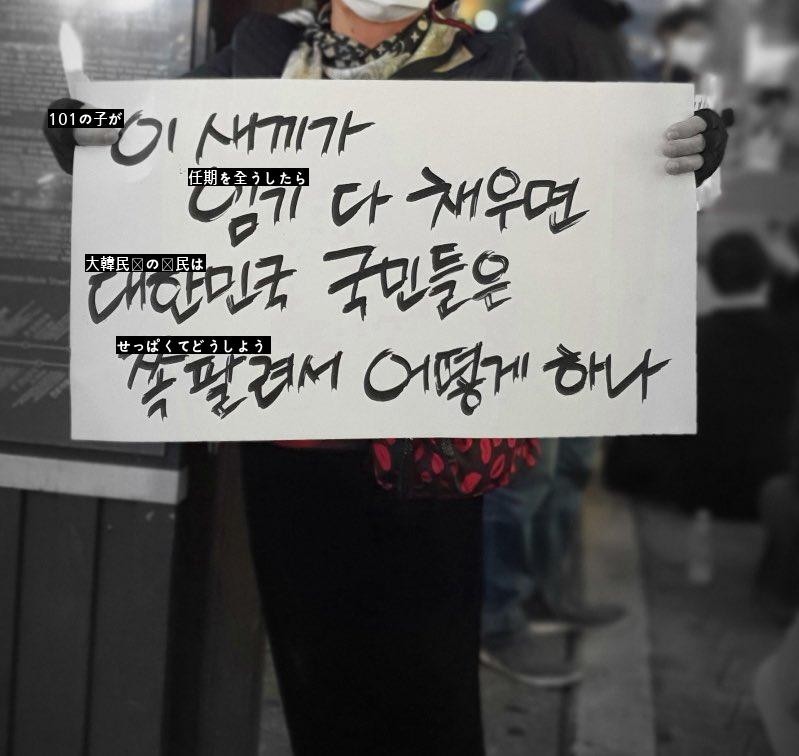 101の子が
이 새끼가
任期を全うしたら
임기 다 채우면
大韓民〿の〿民は
대한민국 국민들은
せっぱくてどうしよう
쪽팔려서 어떻게 하나